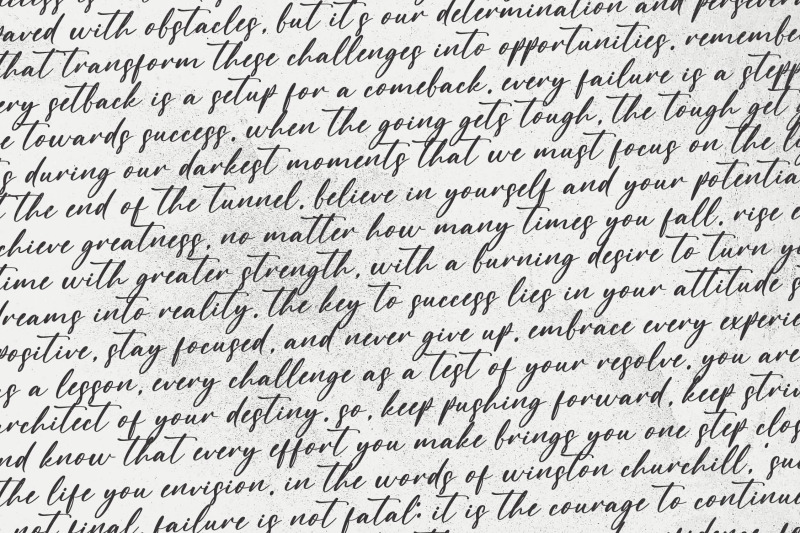 paved with obstacles, but it's our determination and
that transform these challenges into opportunities. remember
every setback is a setup for a comeback. every failure is a
towards success. when the going gets tough, the tough get
during our darkest moments that we must focus on the
the end of the tunnel. believe in yourself and your potential
achieve greatness. no matter how many times you fall, rise
time with greater strength, with a burning desire to turn
dreams into reality. the key to success lies in your attitude
positive, stay focused, and never give up. embrace every
as a lesson, every challenge as a test of your resolve. you are
architect of your destiny. so, keep pushing forward, keep
and know that every effort you make brings you one step
the life you envision. in the words of winston churchill,
not final, failure is not fatal: it is the courage to continue